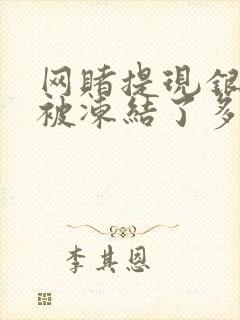 网賭提現銀
被凍結了多
李其恩